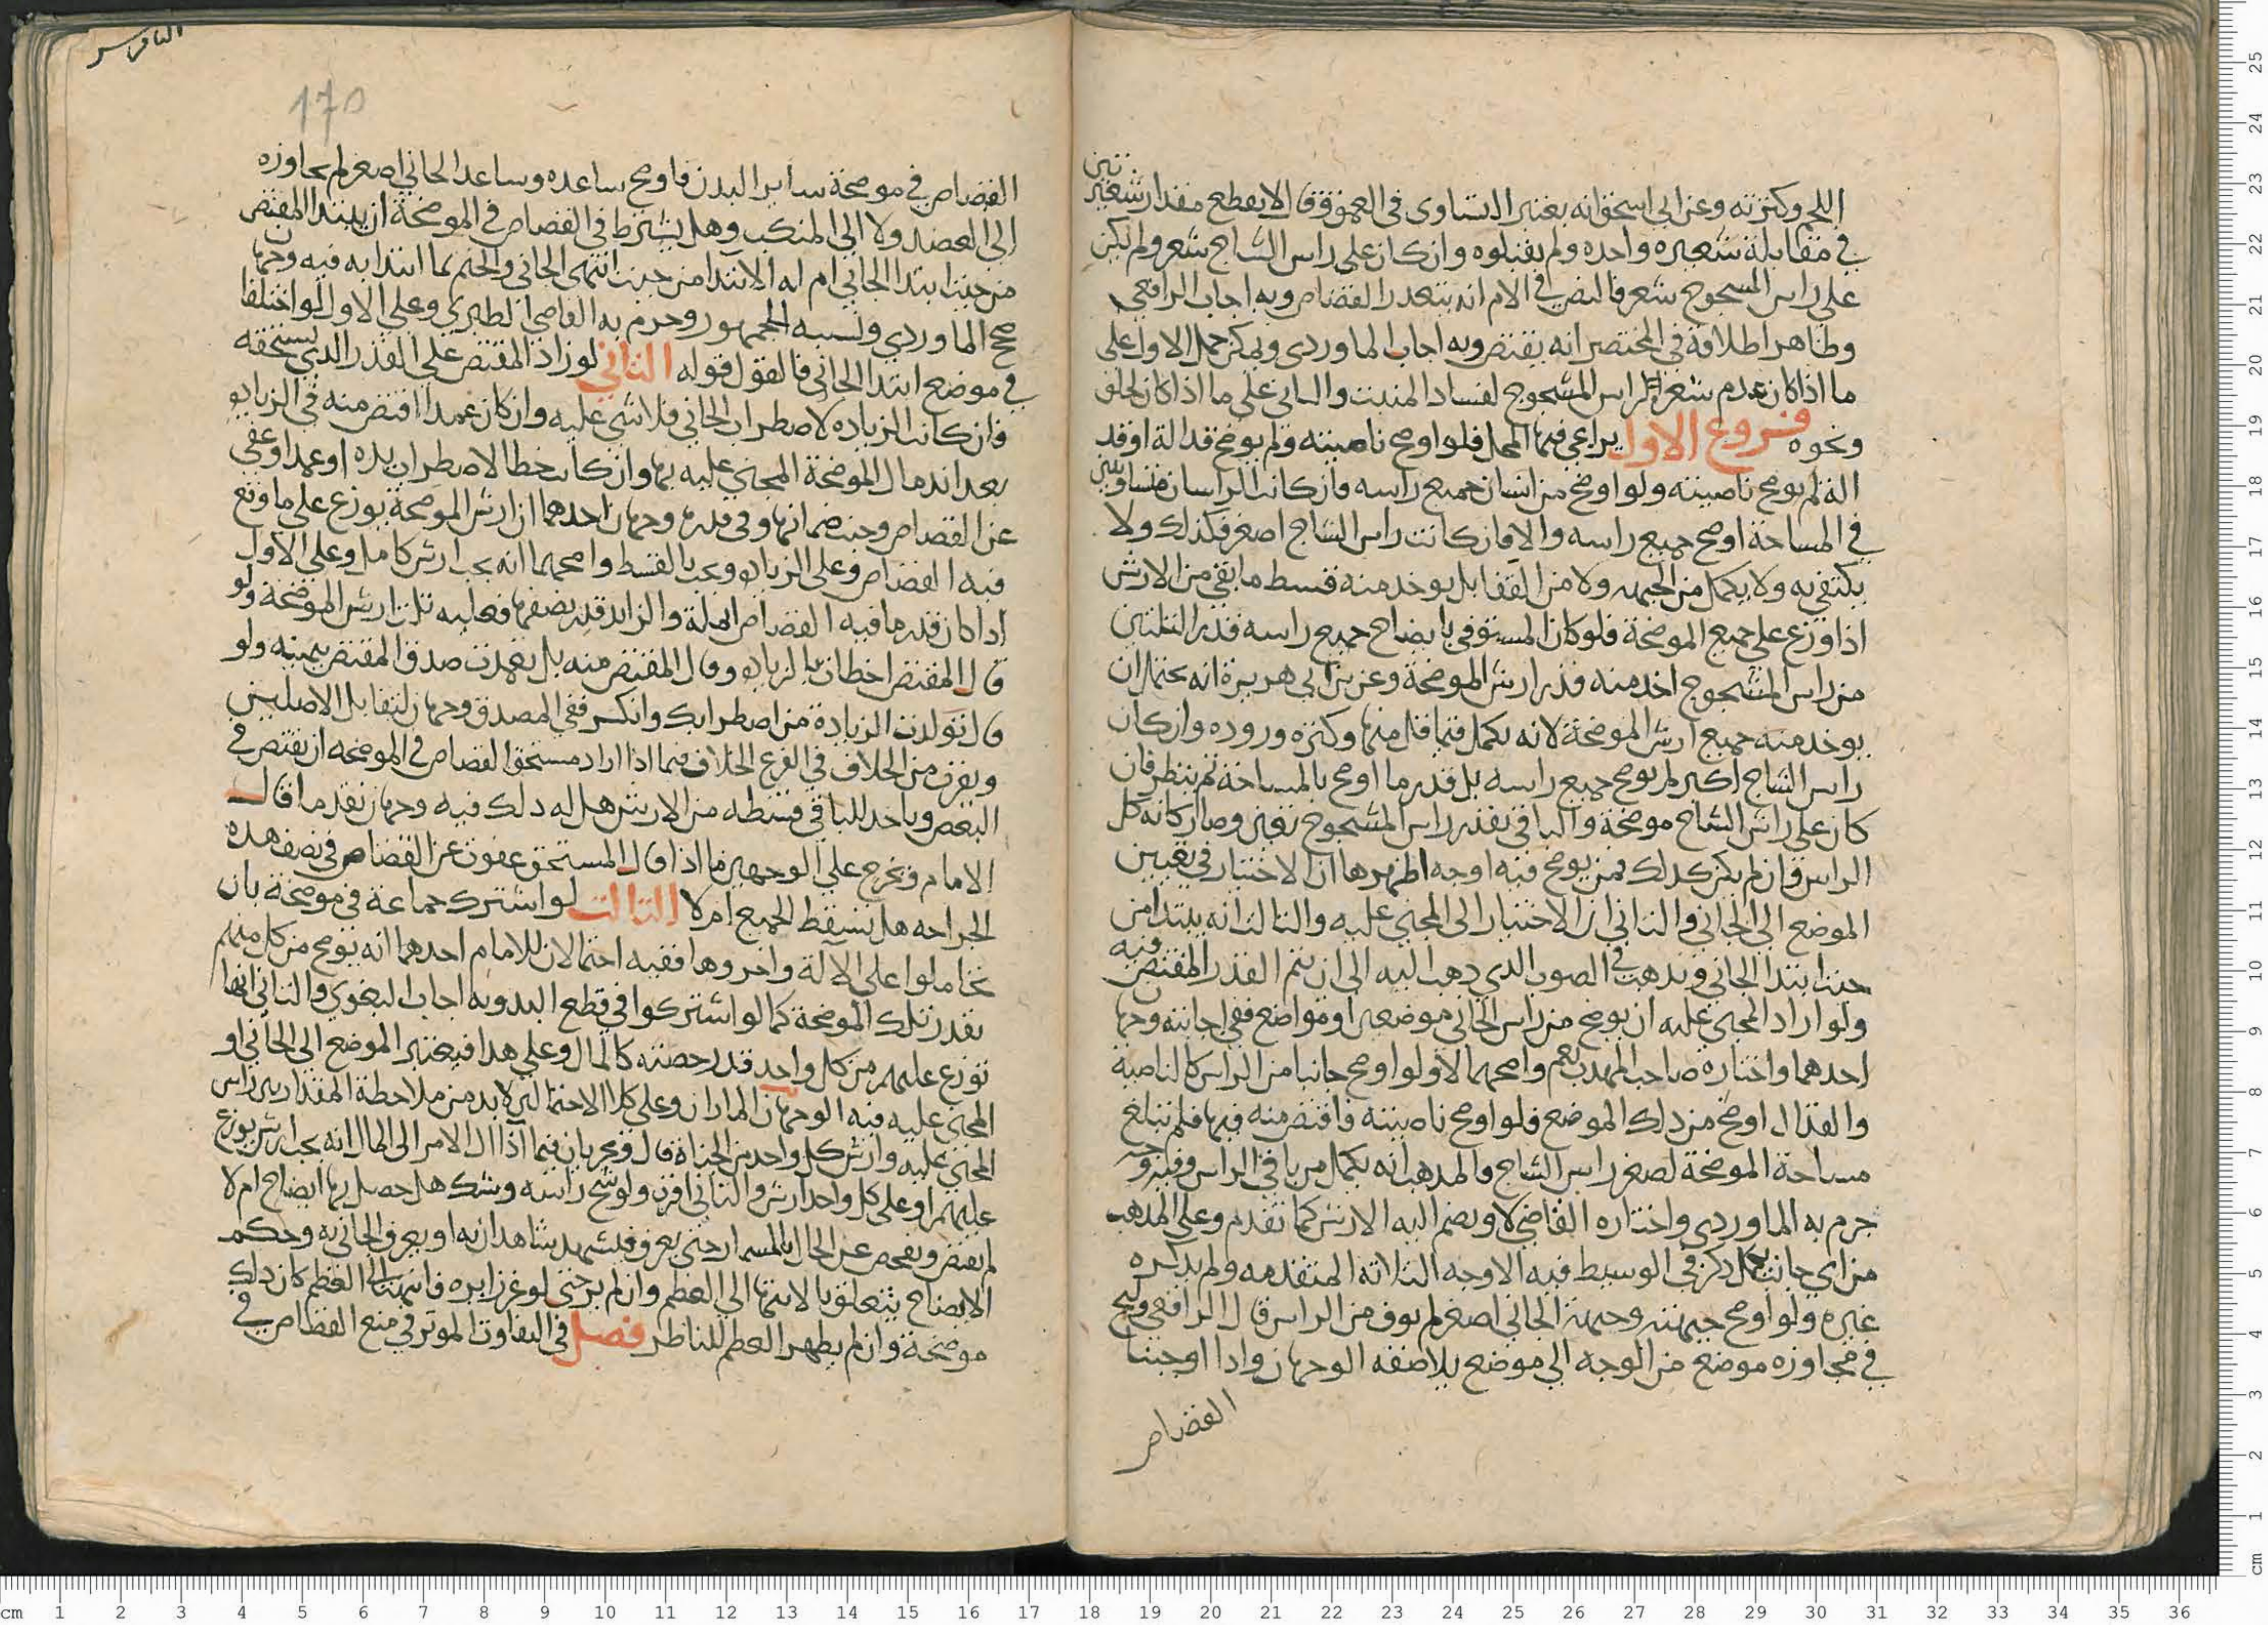 اللحم وكثرته وعن ابي اسحق انه يعتبر التساوي في العمق وقال لا يقطع مقدار شعيرتين
في مقابلة شعيره واحده ولم يقبلوه وان كان على راس الشاج شعر ولم يكن
على راس المشجوج شعر فالنص في الام انه يتعذر القصاص وبه اجاب الرافعي
وظاهر اطلاقه في المختصر انه يقتص وبه اجاب الماوردي ويمكن حمل الاول على
ما اذا كان عدم شعر الراس المشجوج لفساد المنبت والثاني على ما اذا كان لحلق
ونحوه فروع الاول يراعي فيها المحل فلو اوضح ناصيته ولم يوضح قداله او قد
اله لم يوضح ناصيته ولو اوضح من انسان جميع راسه فان كانت الراسان متساويين
في المساحة اوضح جميع راسه والا فان كانت راس الشاج اصغر فكذلك ولا
يكتفي به ولا يكمل من الجبهه ولا من القفا بل يوخد منه قسط ما بقي من الارش
اذا وزع على جميع الموضحة فلو كان المستوفي بايضاح جميع راسه قدر الثلثين
من راس المشجوج اخد منه قدر ارش الموضحة وعن بن ابي هريرة انه يحتمل ان
يوخد منه جميع ارش الموضحة لانه يكمل فيما قل منها وكثره وروده وان كان
راس الشاج اكبر لم يوضح جميع راسه بل قدر ما اوضح بالمساحة ثم ينظر فان
كان على راس الشاج موضحة والباقي بقدر راس المشجوج تعين وصار كانه كل
الراس فان لم يكن كدلك فمن يوضح فيه اوجه اظهرها ان الاختيار في تعيين
الموضع الى الجاني والثاني ان الاختيار الى المجني عليه والثالث انه يبتدا من
حيث ابتدا الجاني ويدهب في الصوب الدي دهب اليه الى ان يتم القدر المقتص فيه
ولو اراد المجني عليه ان يوضح من راس الجاني موضعين او مواضع ففي اجابته وجهان
احدهما واختاره صاحب المهدب نعم واصحهما لا ولو اوضح جانبا من الراس كالناصية
والقذال اوضح من دلك الموضع فلو اوضح ناصيته فاقتص منه فيها فلم تبلغ
مساحة الموضحة لصغر راس الشاج فالمدهب انه يكمل من باقي الراس وفيه وجه
جرم به الماوردي واختاره القاضي لا ويضم اليه الارش كما تقدم وعلى المدهب
من اي جانب يكمل دكر في الوسيط فيه الاوجه الثلاثة المتقدمه ولم يدكره
غيره ولو اوضح جبهته وجبهة الجاني اصغر لم يوف من الراس قال الرافعي ويجي
في مجاوزه موضع من الوجه الى موضع يلاصقه الوجهان واذا اوجبنا
القصاص
170
القصاص في موضحة ساير البدن فاوضح ساعده وساعد الجاني اصغر لم يجاوزه
الى العضد ولا الى المنكب وهل يشترط في القصاص في الموضحة ان يبتدا المقتص
من حيث ابتدا الجاني ام له الابتدا من حيث انتهى الجاني والختم بما ابتدا به فيه وجهان
صح الماوردي ونسبه للجمهور وجرم به القاضي الطبري وعلى الاول لو اختلفا
في موضع ابتدا الجاني فالقول قوله الثاني لو زاد المقتص على القدر الدي يستحقه
فان كانت الزياده لاضطراب الجاني فلا شي عليه وان كان عمدا اقتص منه في الزياده
بعد اندمال الموضحة المجني عليه بها وان كانت خطا لاضطراب يده او عمدا وعفى
عن القصاص وجب ضمانها وفي قدره وجهان احدهما ان ارش الموضحة يوزع على ما وقع
فيه القصاص وعلى الزياده ويجب بالقسط واصحهما انه يجب ارش كامل وعلى الاول
اذا كان قدر ما فيه القصاص والزايد قدر نصفها فعليه ثلث ارش الموضحة ولو
قال المقتص اخطات بالزياده وقال المقتص منه بل تعمدت صدق المقتص بيمينه ولو
قال تولدت الزيادة من اضطرابك وانكر ففي المصدق وجهان لتقابل الاصلين
ويقرب من الخلاف في الفرع الخلاف فيما اذا اراد مستحق القصاص في الموضحه ان يقتص في
البعض وياخد للباقي قسطه من الارش هل له دلك فيه وجهان تقدما قال
الامام ويخرج على الوجهين ما اذا قال المستحق عفوت عن القصاص في نصف هده
الجراحه هل يسقط الجميع ام لا الثالث لو اشترك جماعة في موضحة بان
تحاملوا على الآلة واجروها ففيه احتمالان للامام احدهما انه يوضح من كل منهم
بقدر تلك الموضحة كما لو اشتركوا في قطع اليد وبه اجاب البغوي والثاني انها
توزع عليهم من كل واحد قدر حصته كالمال وعلى هدا فيعتبر الموضع الى الجاني او
المجني عليه فيه الوجهان الماران وعلى كلا الاحتمالين لابد من ملاحظة المقدار بين راس
المجني عليه وراس كل واحد من الجناة قال ويجريان فيما اذا ال الامر الى المال انه يجب ارش يوزع
عليهم او على كل واحد ارش والثاني اقرب ولو شج راسه وشك هل حصل بها ايضاح ام لا
لم يقتص ويفحص عن الحال بالمسمار حتى يعرف فيشهد شاهدان به او يعرف الجاني به وحكم
الايضاح يتعلق بالانتها الى العظم وان لم ير حتى لو غرز ابره فانتهت الى العظم كان دلك
موضحة وان لم يظهر العظم للناظر فصل في التفاوت الموثر في منع القصاص في